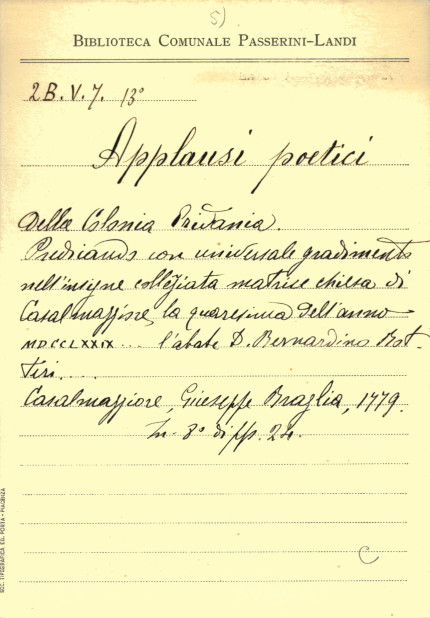 5)
BIBLIOTECA COMUNALE PASSERINI-LANDI
2B.V.7. 13°
Applausi poetici
Della Colonia
Predicando con universale gradimento
nell'insigne collegiata matrice chiesa di
Casalmaggiore, la quaresima dell'anno
MDCCLXXIX... l'abate D. Bernardino Bot-
tiri....
Casalmaggiore, Giuseppe Braglia, 1779.
In-8° di pp. 24.
C
SOC. TIPOGRAFICA ED. PORTA - PIACENZA